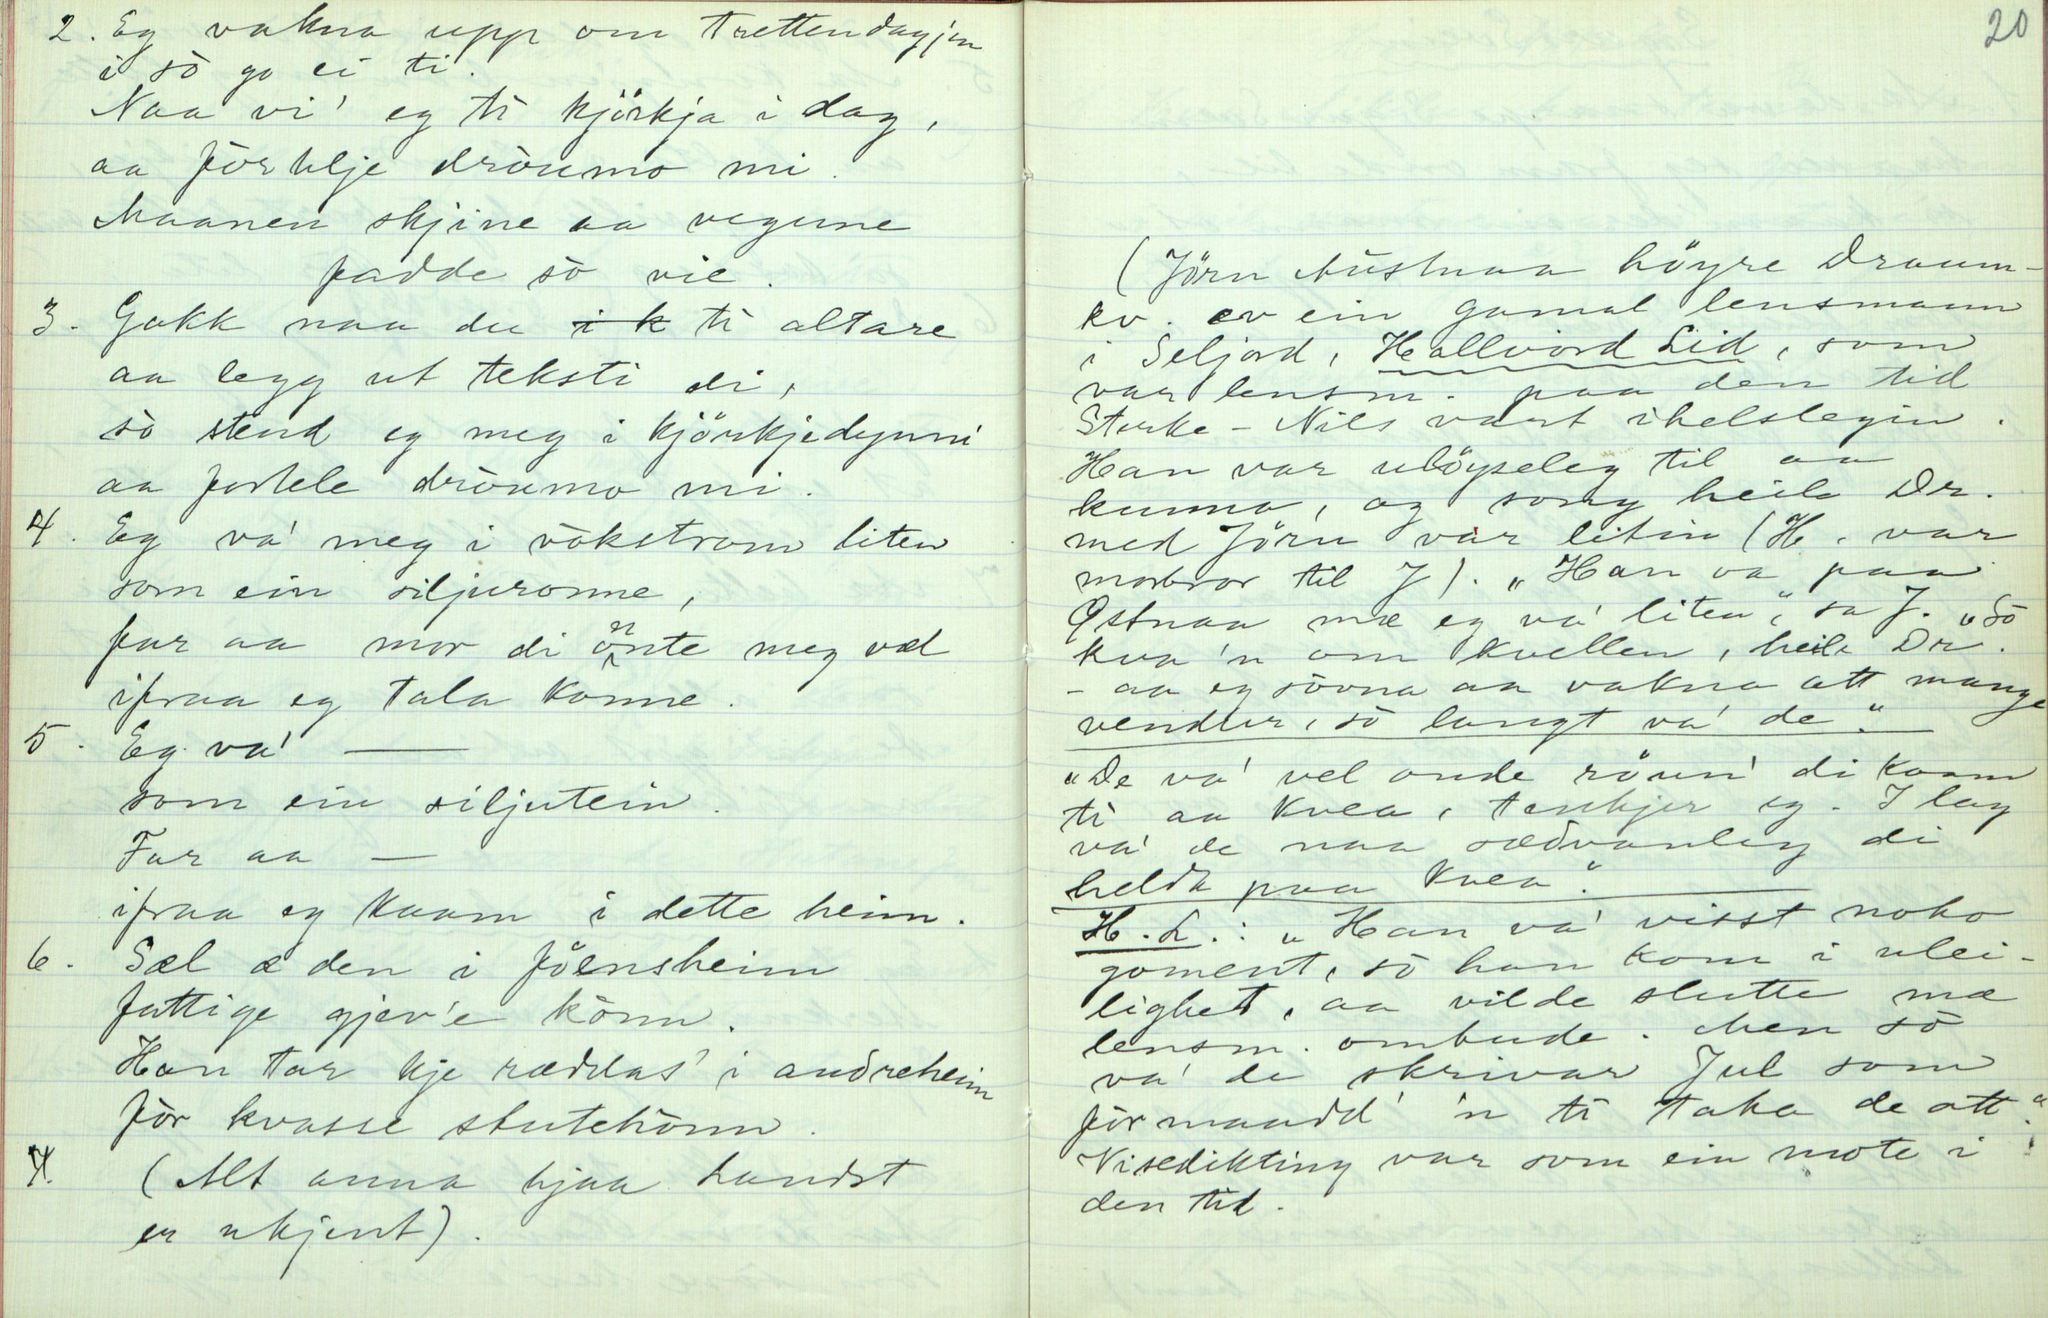 2. Eg vakna upp om trettendagjen
i sò go ei ti.
Naa vi' eg ti kjörkja i dag,
aa förtelje dròumo mi.
Maanen skjine aa vegune
fadde sò vie.
3. Gakk naa du i k ti altare
aa legg ut teksti di,
sò stend eg meg i kjörkjedynni
aa fortele dròumo mi.
4. Eg va' meg i vòkstrom liten
som ein siljuronne,
far aa mor di önte meg vel
ifraa eg tala konne.
5. Eg va' —
som ein siljutein.
Far aa —
ifraa eg kaam i dette heim.
6. Sæl æ den i föensheim
fattige gjev'e könn.
Han tar kje ræddas' i andreheim
för kvasse stutehönn.
7. (Alt anna hjaa Landst
er ukjent).
20
(Jörn Austnaa höyre Draum-
kv. av ein gamal lensmann
i Seljord, Hallvord Lid, som
var lensm. paa den tid
Sterke-Nils vart ihelslegin.
Han var ulöyseleg til aa
kunna, og song heile Dr.
med Jörn var litin (H. var
morbror til J). "Han va paa
Ostnaa mæ eg va' liten", sa J. "Sò
kva 'n om kvellen, heile Dr.
- aa eg sòvna aa vakna att mange
vendur, sò langt va' de".
"De va' vel onde röunn' di kaam
ti aa kvea, tenkjer eg. I lag
va' de naa sedvanleg di
heldt paa kvea".
H. L.: "Han va' visst noko
goment, sò han kom i ulei-
lighet, aa vilde slutte mæ
lensm. ombude. Men sò
va' de skrivar Jul som
förmaadd' 'n ti taka de att."
Visedikting var som ein mote i
den tid.